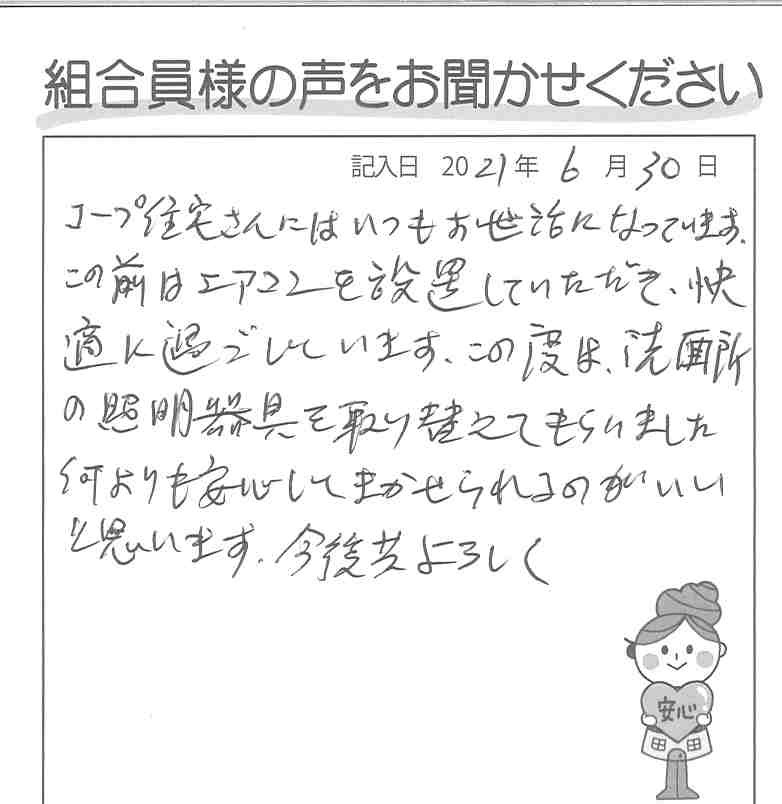 組合員様の声をお聞かせください
記入日 2021年 6月30日
コープ住宅さんにはいつもお世話になっています。
この前はエアコンを設置していただき、快
適に過ごしています。この度は、洗面所
の照明器具を取り替えてもらいました
何よりも安心してまかせられるのがいい
と思います。今後共よろしく
安心